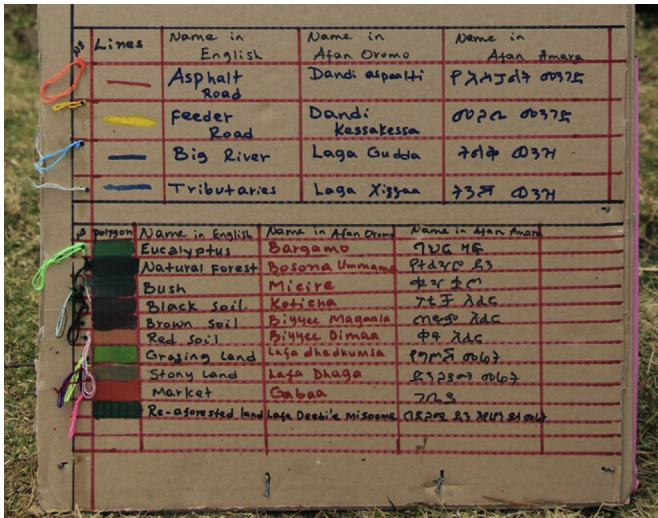 No Lines Name in English Name in Afan Oromo Name in Afan Amara
Asphalt Road Dandi aspaalti የአስፓልት መንገድ
Feeder Road Dandi Kessakessa መጋቢ መንገድ
Big River Laga Gudda ትልቅ ወንዝ
Tributaries Laga Xiqqaa ትንሽ ወንዝ
No Polygon Name in English Name in Afan Oromo Name in Afan Amara
Eucalyptus Bargamo ባህር ዛፍ
Natural Forest Bosona Ummama የተፈጥሮ ደን
Bush Micire
Black Soil Koticha ጥቁር አፈር
Brown Soil Biyyee Magaala አፈር
Red Soil Biyyee Dimaa ቀይ አፈር
Grasing land Lafa dhedkumsa የግጦሽ መሬት
Stony Land Lafa Dhaga ድንጋያማ መሬት
Market Gabaa ገበያ
Re-aforested land Lafa Deebi'e Misoome